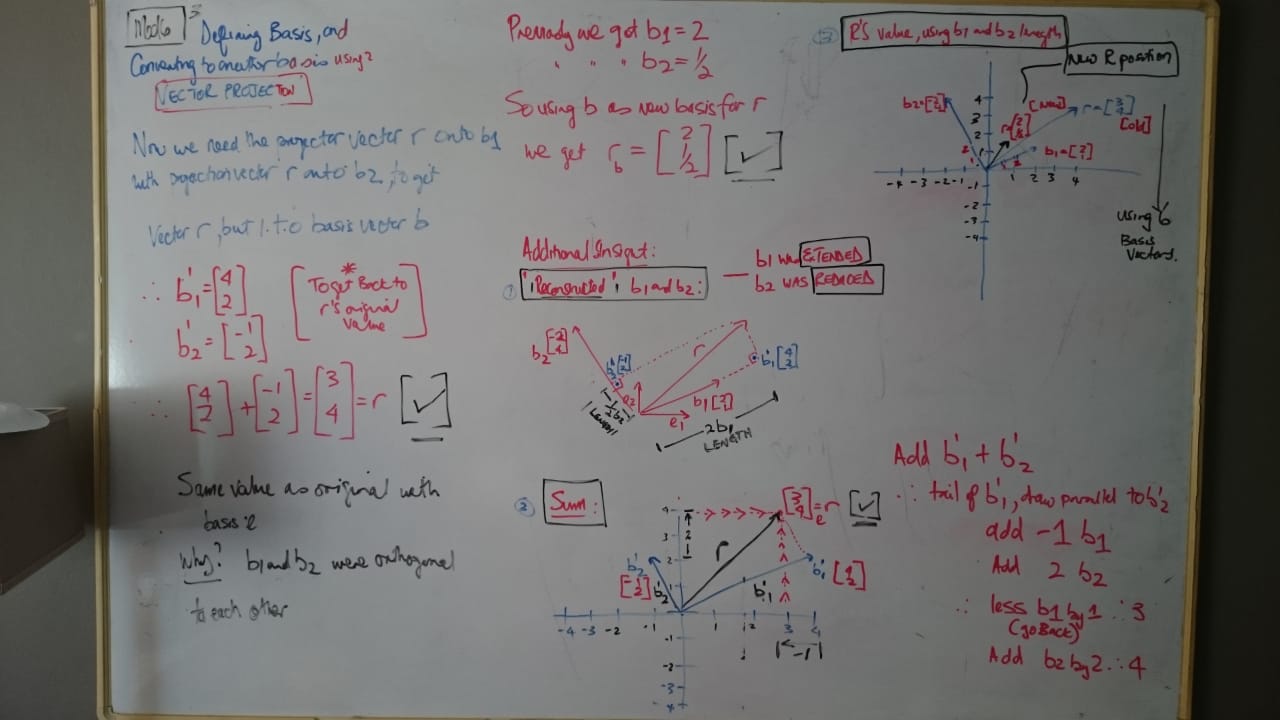 Mod6
Defining Basis, and
Converting to another basis using?
VECTOR PROJECTION
Now we need the projector vector r onto b1
with projection vector r onto b2, to get
Vector r, but I.t.o basis vector b
∴ b'1 = [4 2]
b'2 = [-1 2]
*
To get Back to
r's original
value
∴ [4 2] + [-1 2] = [3 4] = r
Same value as original with
basis e
Why? b1 and b2 were orthogonal
to each other
we got b1 = 2
" " " b2 = 1/2
So using b as new basis for r
we get r b = [2 1/2]
Additional Insight:
① "Reconstructed" b1 and b2:
— b1 was EXTENDED
b2 was REDUCED
b2 [-2 4]
b'2 [-1 2]
r
b'1 [4 2]
b1 [2 1]
e2
e1
1/2 b2
LENGTH
2b1
LENGTH
② Sum:
[3 4] e = r
4
3
2
1
2
r
b'2
[-1 2]
b'2
b'1
b'1 [4 2]
-4 -3 -2 -1 1 2 3 4
-1
-2
-3
-4
|<-1|
③ R'S value, using b1 and b2 length
New R position
b2=[-2 4]
4
3
2
1
[New]
r=[3 4]
[old]
r=[2 1/2]
b1=[2 1]
-4 -3 -2 -1 1 2 3 4
-1
-2
-3
-4
Using b
Basis
Vectors.
Add b'1 + b'2
∴ tail of b'1, draw parallel to b'2
add -1 b1
Add 2 b2
∴ less b1 by 1 ∴ 3
(go Back)
Add b2 by 2 ∴ 4